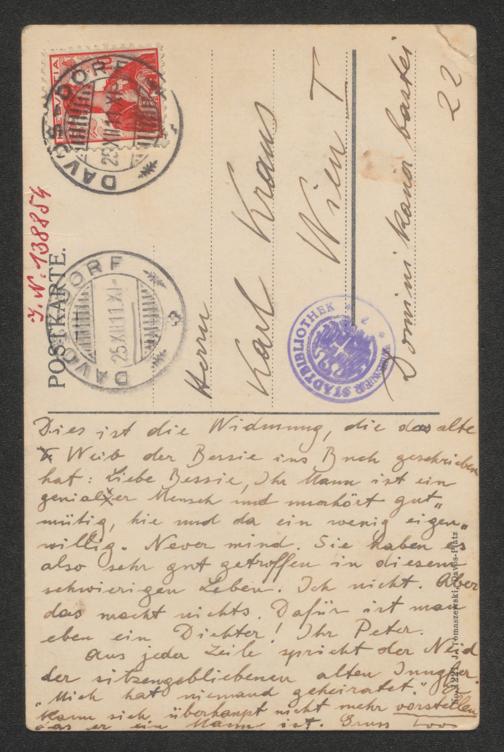 HELVETIA
DAVOS-DORF
25.XII.11.XI-
J. N. 138854
POSTKARTE.
DAVOS-DORF
25.XII.11.XI-
3
Herrn
Karl Kraus
Wien I
Dominikanerbastei
22
WIENER STADTBIBLIOTHEK
Dies ist die Widmung, die das alte
Weib der Bessie ins Buch geschrieben
hat: Liebe Bessie, Ihr Mann ist ein
genialer Mensch und unerhört gut„
mütig, hie und da ein wenig eigen„
willig. Never mind. Sie haben es
also sehr gut getroffen in diesem
schwierigen Leben. Ich nicht. Aber
das macht nichts. Dafür ist man
eben ein Dichter! Ihr Peter.
Aus jeder Zeile spricht der Neid
der sitzengebliebenen alten Jungfer.
"Mich hat niemand geheiratet." Er
kann sich überhaupt nicht mehr vorstellen
das er ein Mann ist. Gruss Loos
J. Tomaszewski, Davos-Platz